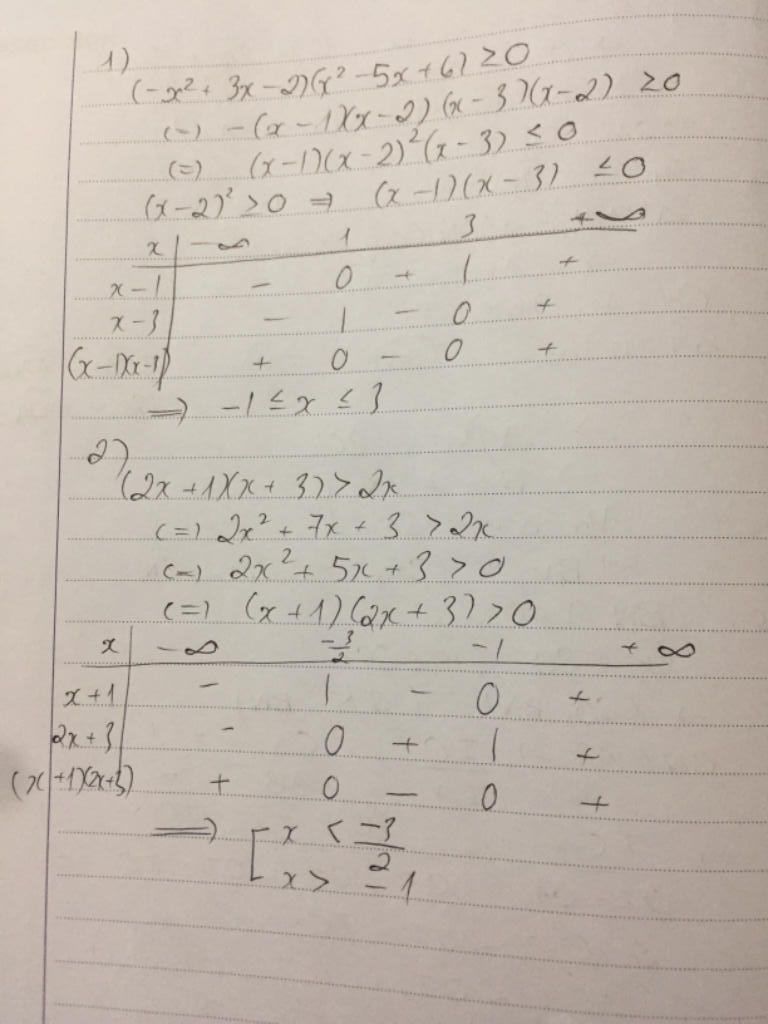 1)
(-x² + 3x - 2)(x² - 5x + 6) ≥ 0
(=) -(x - 1)(x - 2)(x - 3)(x - 2) ≥ 0
(=) (x - 1)(x - 2)²(x - 3) ≤ 0
(x - 2)² ≥ 0 => (x - 1)(x - 3) ≤ 0
x | -∞ 1 3 +∞
x - 1 | - 0 + | +
x - 3 | - | - 0 +
(x - 1)(x - 3) | + 0 - 0 +
=> -1 ≤ x ≤ 3
2)
(2x + 1)(x + 3) > 2x
(=) 2x² + 7x + 3 > 2x
(=) 2x² + 5x + 3 > 0
(=) (x + 1)(2x + 3) > 0
x | -∞ -3/2 -1 +∞
x + 1 | - | - 0 +
2x + 3 | - 0 + | +
(x + 1)(2x + 3) + 0 - 0 +
=> [ x < -3/2
x > -1